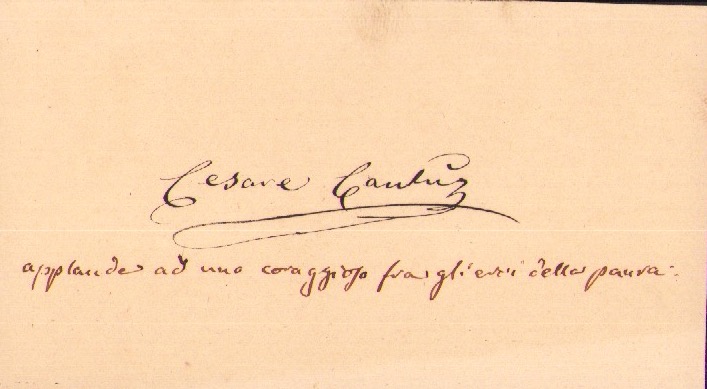 Cesare Cantù
applaude ad uno coraggioso fra gli eroi della paura.